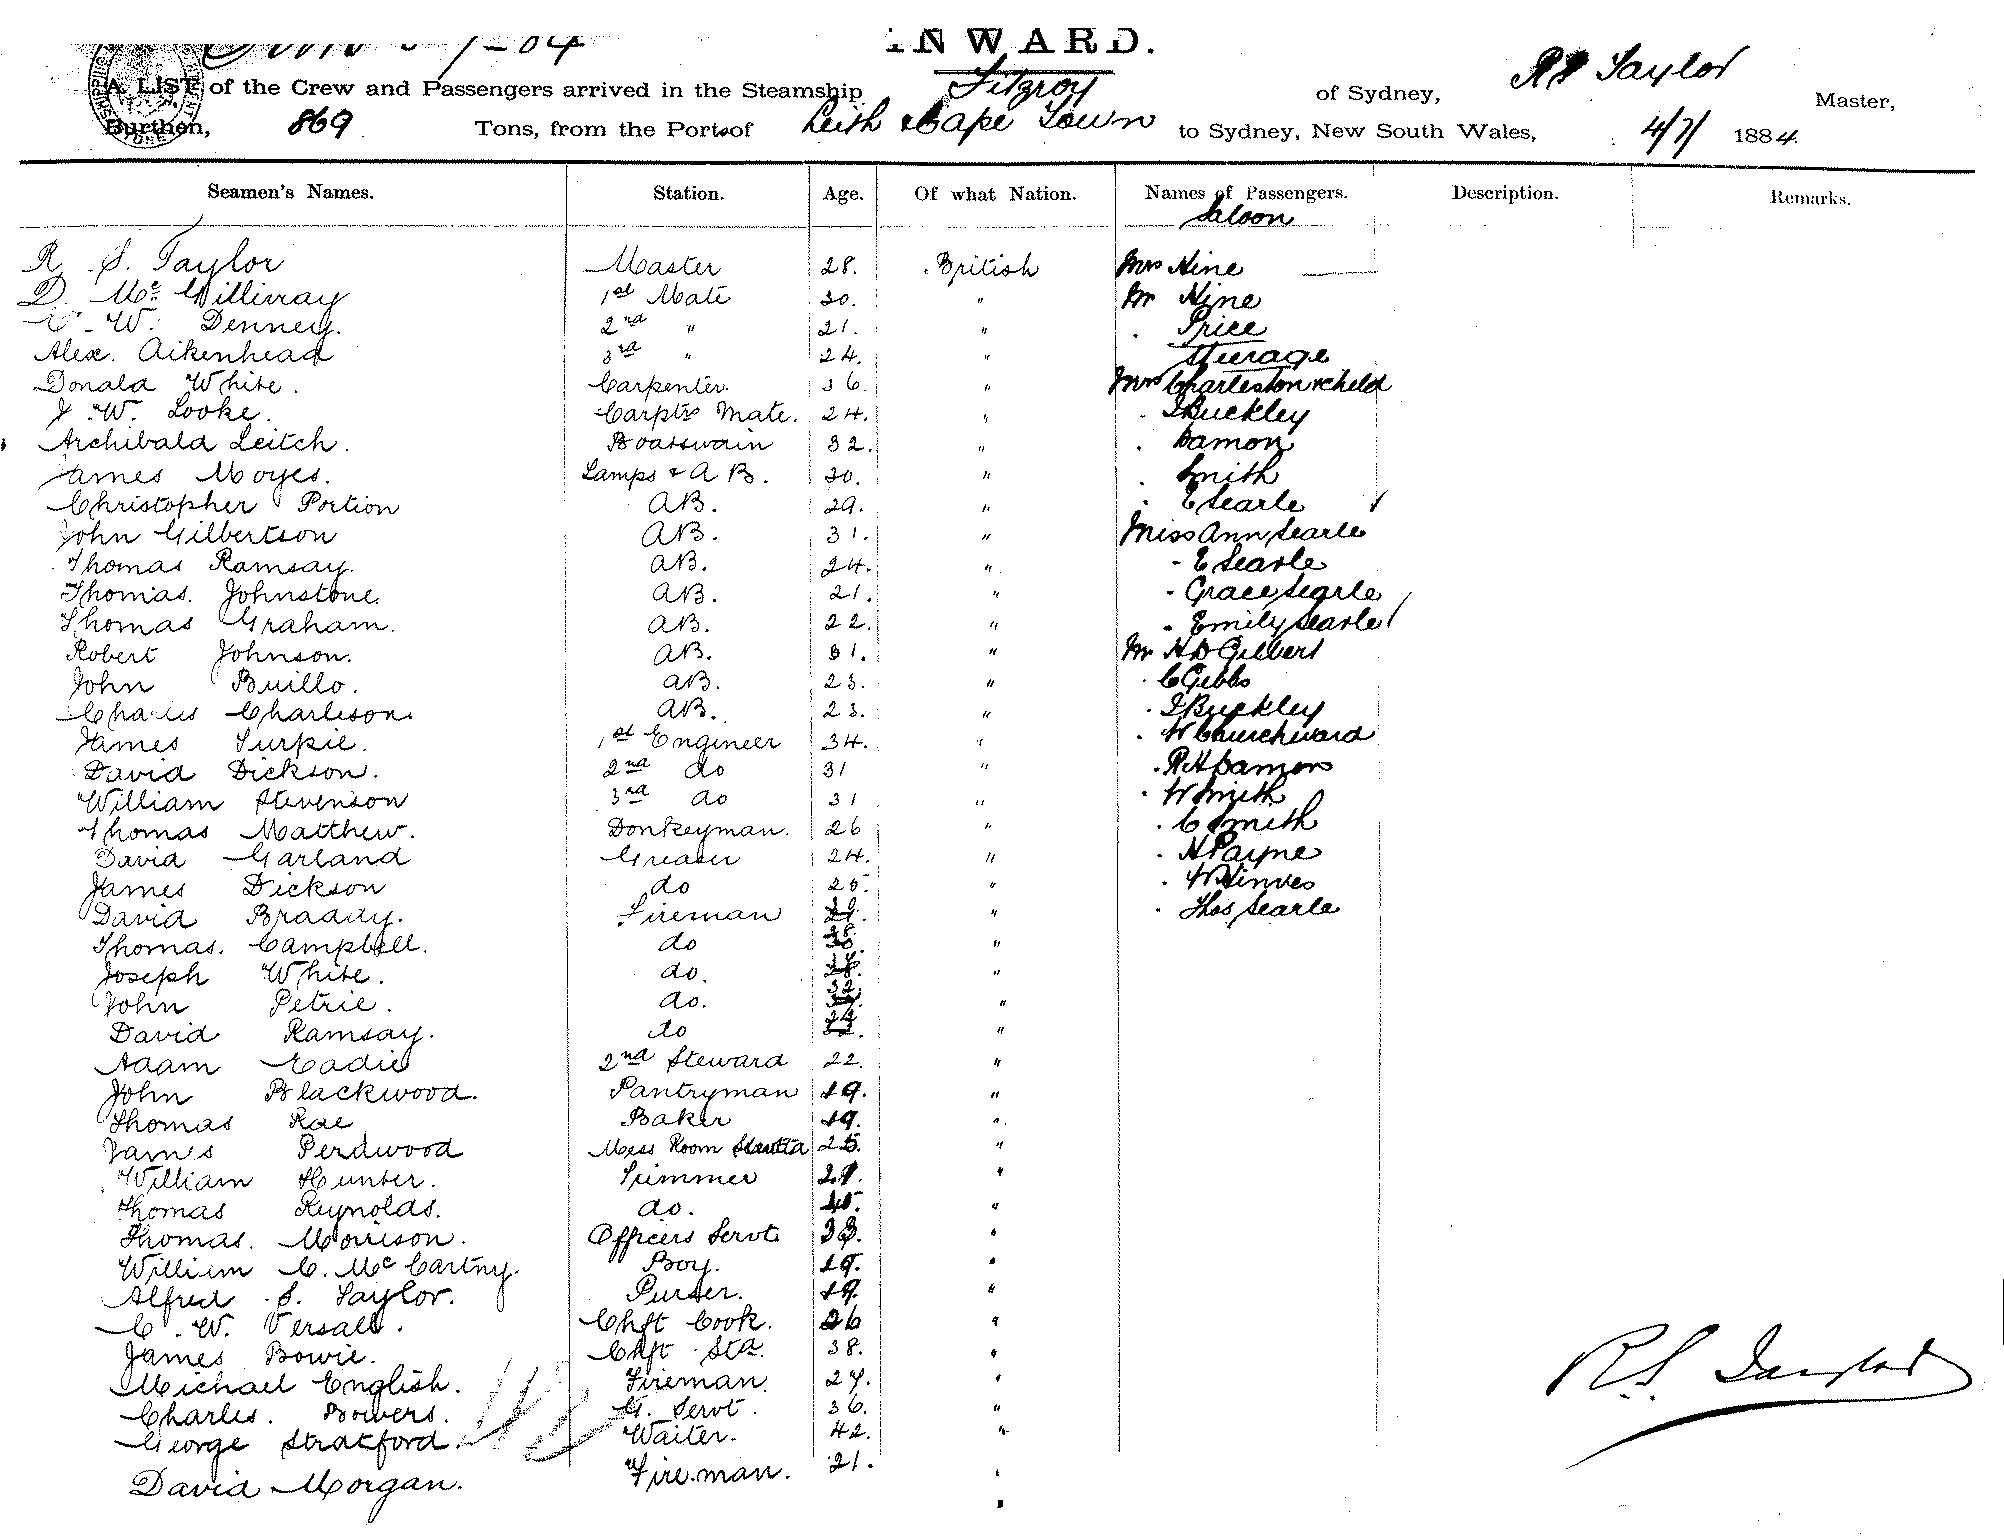 INWARD.
A LIST of the Crew and Passengers arrived in the Steamship Fitzroy of Sydney, R S Taylor Master,
Burthen, 869 Tons, from the Ports of Leith & Cape Town to Sydney, New South Wales, 4/7/ 1884.
Seamen's Names. Station. Age. Of what Nation. Names of Passengers. Description. Remarks.
Saloon
R. S. Taylor Master 28. British Mrs Hine
D. Mc Gillivray 1st Mate 30. " Mr Hine
W. Denney. 2nd " 21. " . Price
Alex. Aikenhead 3rd " 24. " Steerage
Donald White. Carpenter 36. " Mrs Charleston & child
J. W. Looke. Carptrs Mate. 24. " . Buckley
Archibald Leitch. Boatswain 32. " . Damon
James Moyes. Lamps & A B. 30. " . Smith
Christopher Portion AB. 29. " . E Searle
John Gilbertson AB. 31. " Miss Ann Searle
Thomas Ramsay. AB. 24. " - E Searle
Thomas. Johnstone. AB. 21. " - Grace Searle
Thomas Graham. AB. 22. " - Emily Searle
Robert Johnson. AB. 31. " Mr H D Gilbert
John Buillo. AB. 23. " . C Gibbs
Charles Charleson. AB. 23. " . Buckley
James Turpie. 1st Engineer 34. " . W Churchward
David Dickson. 2nd do 31 " . R H Damon
William Stevenson 3rd do 31 " . W Smith
Thomas Matthew. Donkeyman. 26 " . C Smith
David Garland Greaser 24. " . H Payne
James Dickson do 25. " . W Hinves
David Braddy. Fireman " . Thos Searle
Thomas. Campbell. do "
Joseph White. do. "
John Petrie. do. 32 "
David Ramsay. do "
Adam Eadie 2nd Steward 22. "
John Blackwood. Pantryman 19. "
Thomas Rae Baker 19. "
James Perdwood Mess Room 25. "
William Hunter. Trimmer 21. "
Thomas Reynolds. do. "
Thomas. Morrison. Officers Servt. 23. "
William C. Mc Cartny. Boy. 19. "
Alfred S. Taylor. Purser. 19. "
C. W. Versall. Chft Cook. 26 "
James Bowie. Chft Std. 38. "
Michael English. Fireman. 27. "
Charles. Bowers. G. Servt. 36. "
George Stratford Waiter. 42. "
David Morgan. Fireman. 21. "
R. S. Taylor